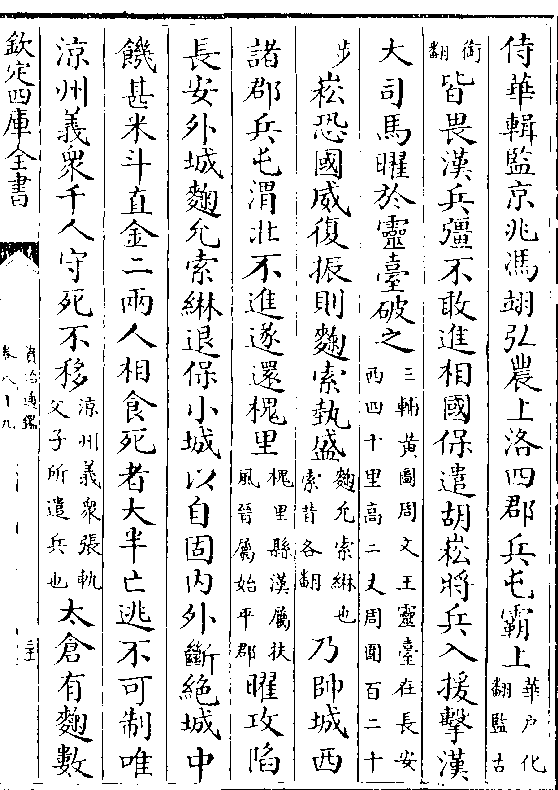 侍華輯監京兆馮翊弘農上洛四郡兵屯霸上華户化翻監古
銜翻皆畏漢兵彊不敢進相國保遣胡崧將兵入援擊漢
大司馬曜於靈臺破之三輔黄圖周文王靈臺在長安西四十里高二丈周圍百二十
步崧恐國威復振則麴索埶盛麴允索綝也索昔各翻乃帥城西
諸郡兵屯渭北不進遂還槐里槐里縣漢屬扶風晉屬始平郡曜攻陷
長安外城麴允索綝退保小城以自固内外斷絶城中
饑甚米斗直金二兩人相食死者大半亡逃不可制唯
涼州義衆千人守死不移涼州義衆張軌父子所遣兵也太倉有麴數
欽定四庫全書
資治通鑑
卷八十九